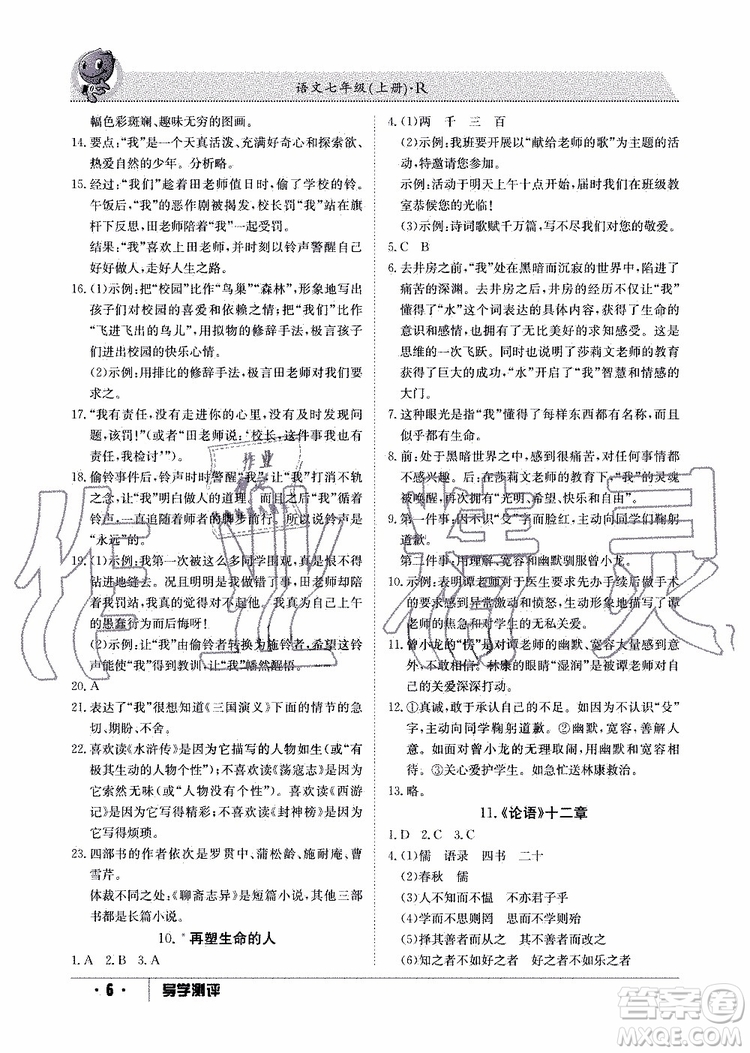 语文七年级(上册)·R
幅色彩斑斓、趣味无穷的图画。
14. 要点:“我”是一个天真活泼、充满好奇心和探索欲、
热爱自然的少年。分析略。
15. 经过:“我们”趁着田老师值日时,偷了学校的铃。
午饭后,“我们”的恶作剧被揭发,校长罚“我”站在旗
杆下反思,田老师陪着“我”一起受罚。
结果:“我”喜欢上田老师,并时刻以铃声警醒自己
好好做人,走好人生之路。
16. (1)示例:把“校园”比作“鸟巢”“森林”,形象地写出
孩子们对校园的喜爱和依赖之情;把“孩子们”比作
“飞进飞出的鸟儿”,用拟物的修辞手法,写出孩子
们进出校园的快乐心情。
(2)示例:用排比的修辞手法,极言田老师对我们要
求之。
17. “我有责任,没有走进你的心里,没有及时发现问题,
该罚!”(或者“田老师说:‘校长,这件事我有责
任,我检讨’”)
18. 偷铃事件后,铃声时时警醒“我”,让“我”打消不轨
之念,让“我”明白做人的道理。“我”而且“我”循着
铃声,也伴随着老师的脚步前行。所以说铃声是
“永远”的。
19. (1)示例:我第一次被这么多同学围观,真恨不得
钻进地缝去。况且老师还陪着我,这大半天上午
的愚蠢行为后悔呀!
(2)示例:让“我”由偷铃者转换为护铃者,希望这铃
声能够使“我”得到教训,让“我”幡然醒悟。
20. A
21. 表达了“我”很想知道《三国演义》下面的情节的急
切、期盼、不舍。
22. 喜欢读《水浒传》是因为它描写的人物如生(或“有
极其生动的人物刻画”)。不喜欢读《荡寇志》是因为
它索然无味(或“没有生动的人物”)。喜欢读《西游
记》是因为它写得精彩;不喜欢《封神榜》是因为
它写得烦琐。
23. 四部书的作者依次是罗贯中、蒲松龄、施耐庵、曹
雪芹。
体裁不同,《聊斋志异》是短篇小说,其他三部
书都是长篇小说。
10. *再塑生命的人
1. A 2. B 3. A
4. (1)两 千 三 百
(2)示例:我班要开展以“献给老师的歌”为主题的活
动,特邀请您参加。
示例:活动于明天上午十点开始,届时我在班级教
室恭候您的光临!
(3)示例:诗词歌赋千万篇,写不尽对您的敬爱。
5. C B
6. 去井房之前,“我”处在黑暗而沉寂的世界中,陷进了
痛苦的深渊。去井房后,在莎莉文老师的教育下,“我”
懂得了“水”这个词表达的具体内容,获得了生命的
意识和光明,产生了无比美好的求知感受。这是我思
维的一次飞跃。同时,也说明了莎莉文老师的教育
获得了巨大的成功,她开启了“我”智慧和情感的
大门。
7. 这种眼光是指“我”懂得了每样东西都有名称,而且
似乎都有生命。
8. 前:处于黑暗世界之中,感到很痛苦,对任何事情都
不感兴趣。后:在莎莉文老师的教育下,“我”的灵魂
被唤醒,再次拥有“光明、希望、快乐和自由”。
9. 第一件事:因不识“殳”字而脸红,主动向同学们鞠躬
道歉。
第二件事:用理解、宽容和幽默驯服曾小龙。
10. 示例:表明谭老师对于医生要求先办手续后看病、
不及时救治的激动和愤怒,生动形象地表现了谭
老师的焦急以及对学生的无私关爱。
11. 曾小龙的“愣”是对谭老师的幽默、大度宽容感到意外、
不敢相信;林康的眼睛“湿润”是被谭老师对
自己的关爱深深打动。
12. ①真诚,敢于承认错误,不掩饰自己不认识“殳”
字,主动向同学鞠躬道歉。②幽默、宽容,用幽默、
宽容面对曾小龙的无理取闹,让他心服口服,有所
改变。③关心爱护学生。如急忙送林康救治。
13. 略。
11.《论语》十二章
1. D 2. C 3. C
4. (1)儒 语录 四书 二十
(2)春秋 儒
(3)人不知而不愠 不亦君子乎
(4)学而不思则罔 思而不学则殆
(5)择其善者而从之 其不善者而改之
(6)知之者不如好之者 好之者不如乐之者
· 6 · 导学测评
作业精灵
作业精灵
答案圈